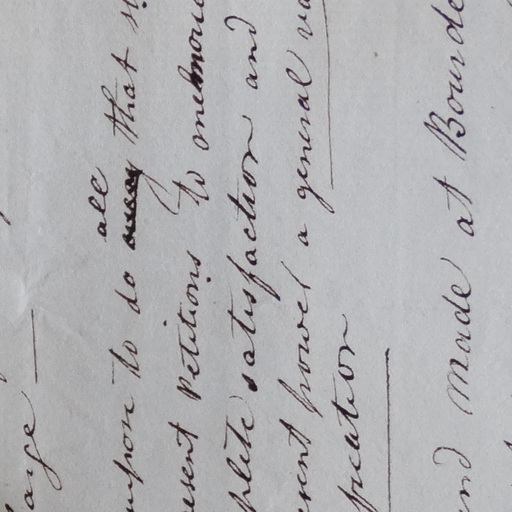 arge —
all
upon to do that
esent Petitions to
plete satisfaction and
esent power a general
fication
and made at Bourde